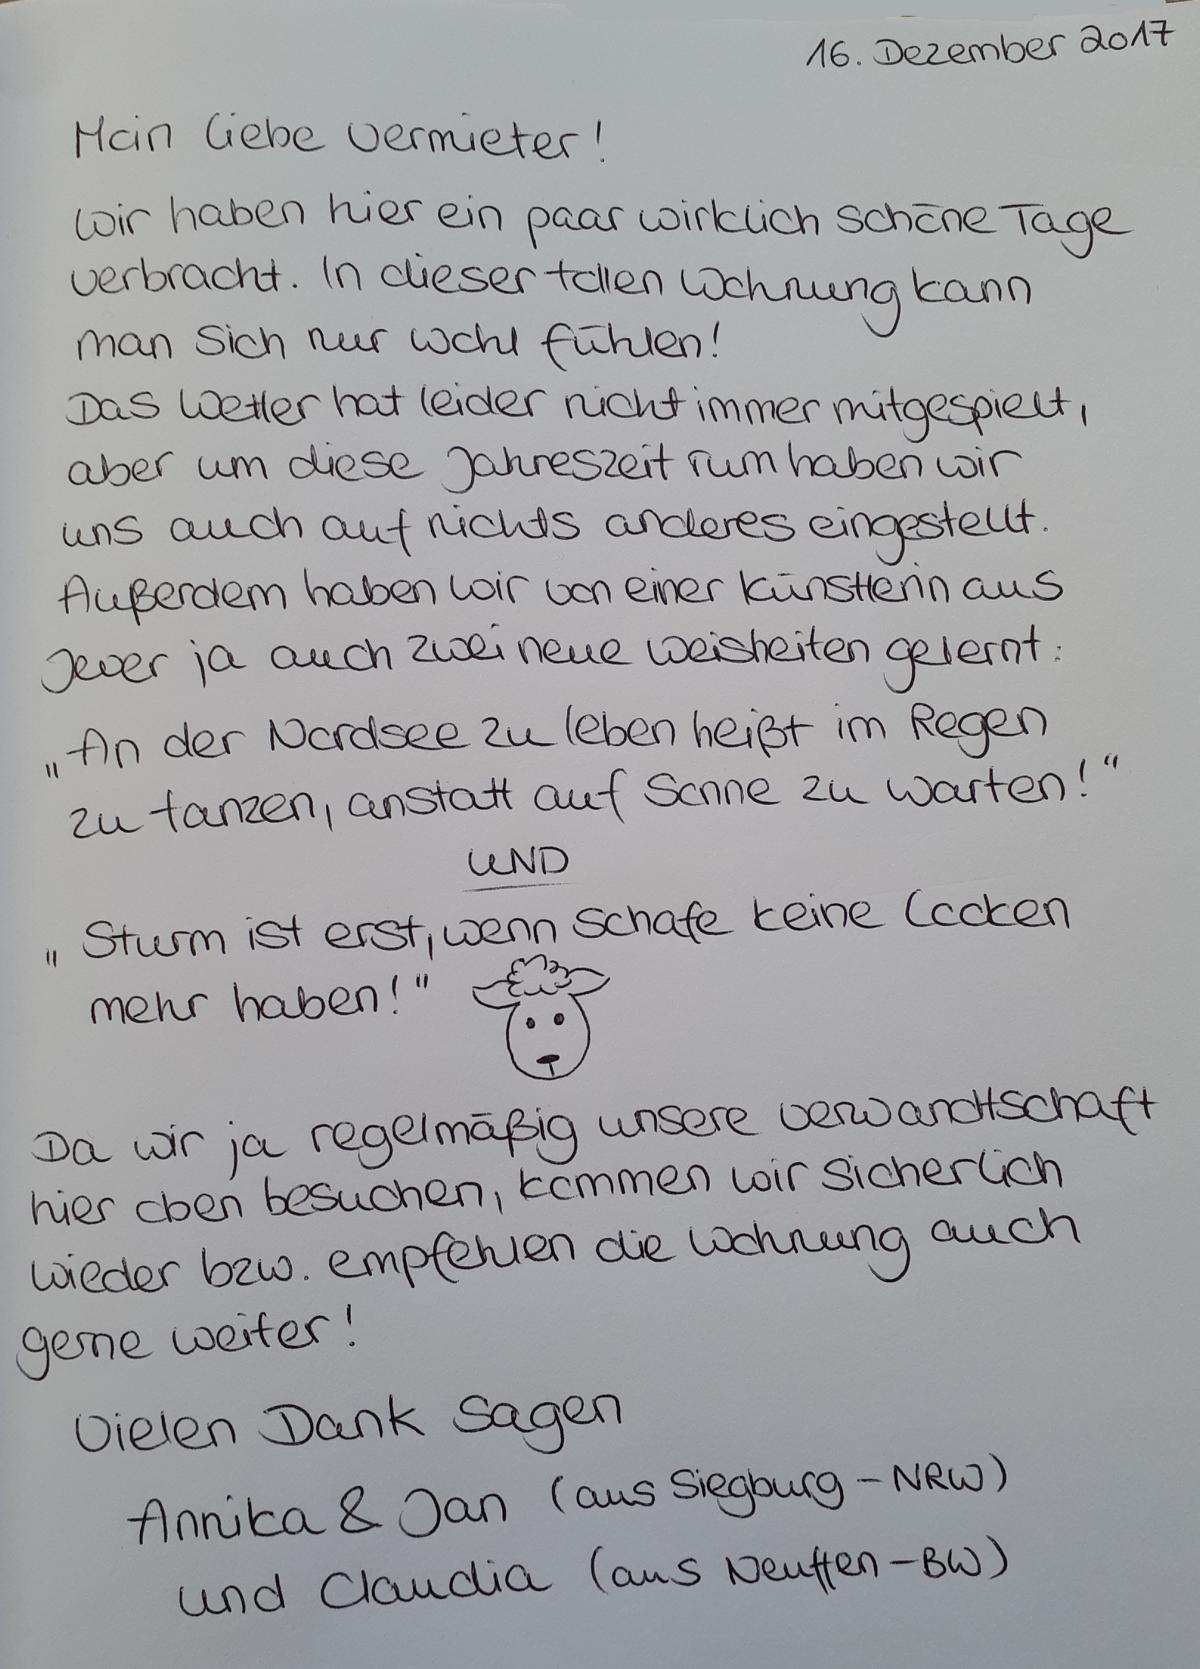 16. Dezember 2017
Mein liebe Vermieter!
Wir haben hier ein paar wirklich schöne Tage
verbracht. In dieser tollen Wohnung kann
man sich nur wohl fühlen!
Das Wetter hat leider nicht immer mitgespielt,
aber um diese Jahreszeit rum haben wir
uns auch auf nichts anderes eingestellt.
Außerdem haben wir von einer Künstlerin aus
Jever ja auch zwei neue Weisheiten gelernt:
„An der Nordsee zu leben heißt im Regen
zu tanzen, anstatt auf Sonne zu warten!“
UND
„Sturm ist erst, wenn Schafe keine Locken
mehr haben!“
Da wir ja regelmäßig unsere Verwandtschaft
hier oben besuchen, kommen wir sicherlich
wieder bzw. empfehlen die Wohnung auch
gerne weiter!
Vielen Dank sagen
Annika & Jan (aus Siegburg – NRW)
und Claudia (aus Neuffen – BW)